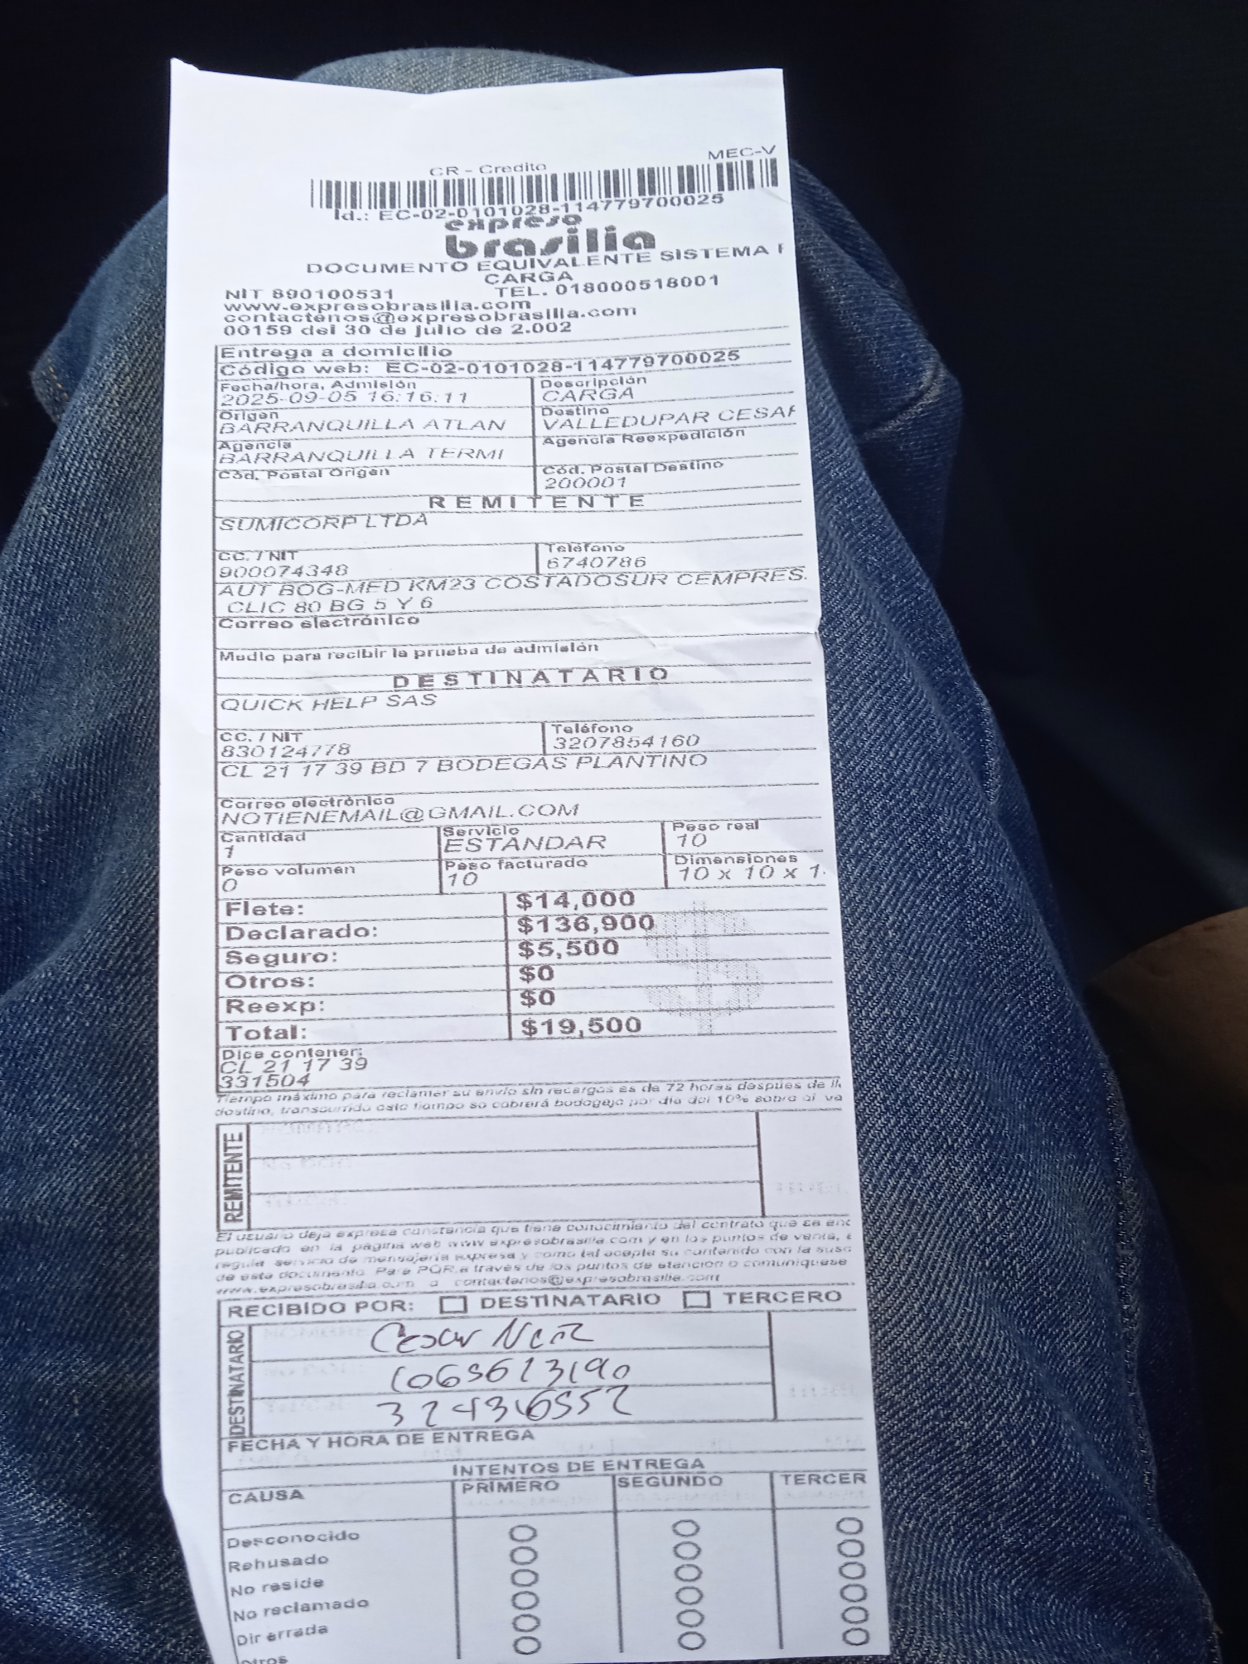 CR - Credito MEC-V
Id.: EC-02-0101028-114779700025
expreso
brasilia
DOCUMENTO EQUIVALENTE SISTEMA
CARGA
NIT 890100531 TEL. 018000518001
www.expresobrasilia.com
contactenos@expresobrasilia.com
00159 del 30 de julio de 2.002
Entrega a domicilio
Código web: EC-02-0101028-114779700025
Fecha/hora, Admisión Descripción
2025-09-05 16:16:11 CARGA
Origen Destino
BARRANQUILLA ATLAN VALLEDUPAR CESAR
Agencia Agencia Reexpedición
BARRANQUILLA TERMI
Cód. Postal Origen Cód. Postal Destino
200001
REMITENTE
SUMICORP LTDA
CC. / NIT Teléfono
900074348 6740786
AUT BOG-MED KM23 COSTADOSUR CEMPRES.
CLIC 80 BG 5 Y 6
Correo electrónico
Medio para recibir la prueba de admisión
DESTINATARIO
QUICK HELP SAS
CC. / NIT Teléfono
830124778 3207854160
CL 21 17 39 BD 7 BODEGAS PLANTINO
Correo electrónico
NOTIENEMAIL@GMAIL.COM
Cantidad Servicio Peso real
1 ESTANDAR 10
Peso volumen Peso facturado Dimensiones
0 10 10 x 10 x 1
Flete: $14,000
Declarado: $136,900
Seguro: $5,500
Otros: $0
Reexp: $0
Total: $19,500
Dice contener:
CL 21 17 39
331504
Tiempo máximo para reclamar su envío sin recargos es de 72 horas despues de
destino, transcurrido este tiempo se cobrará bodegaje por día del 10% sobre el va
REMITENTE
El usuario deja expresa constancia que tiene conocimiento del contrato que se enc
publicado en la página web www.expresobrasilia.com y en los puntos de venta,
regula servicio de mensajería expresa y como tal acepta su contenido con la susc
de este documento. Para PQR a través de los puntos de atención o comuníquese
www.expresobrasilia.com o contactenos@expresobrasilia.com
RECIBIDO POR: DESTINATARIO TERCERO
DESTINATARIO
Cesar
1065613190
FECHA Y HORA DE ENTREGA
INTENTOS DE ENTREGA
CAUSA PRIMERO SEGUNDO TERCER
Desconocido
Rehusado
No reside
No reclamado
Dir errada
Otros